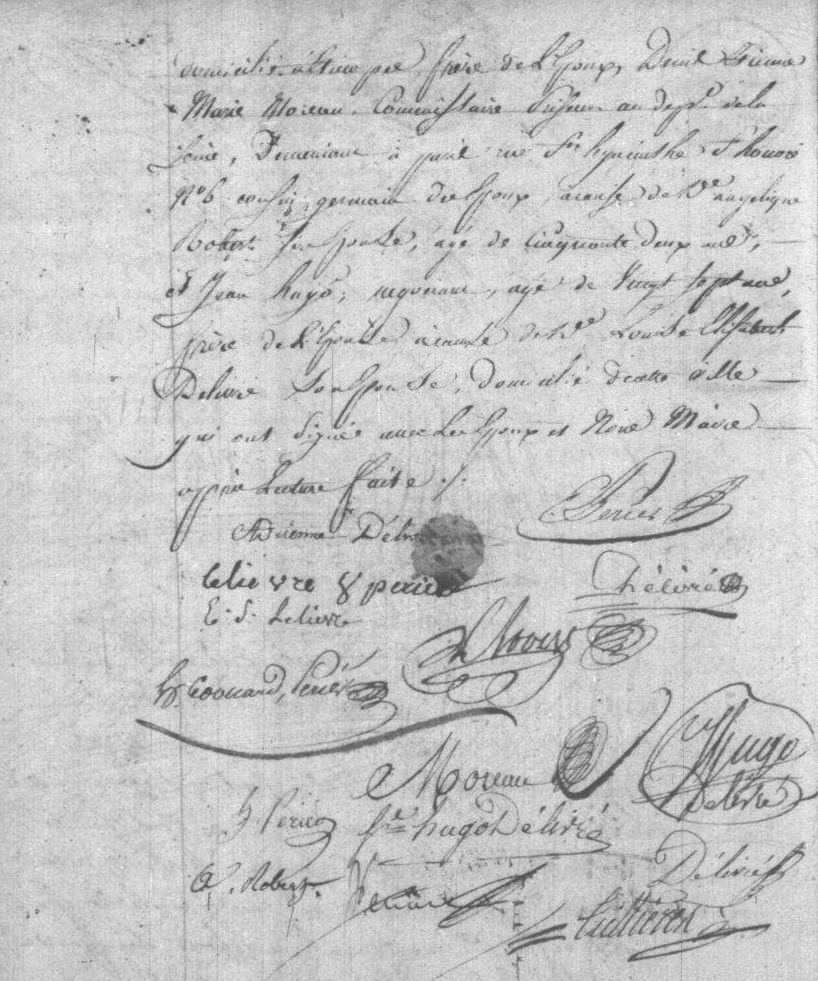 domicilié à frère de L'Epoux, Denis Etienne
Marie Moreau, Commissaire Priseur au dépt. de la
Seine, Demeurant à paris rue St. hyacinthe St honoré
N°6 cousin germain de L'Epoux, à cause de De angélique
Robert son Epouse, agé de Cinquante deux ans,
et Jean hugo, negociant, agé de Vingt sept ans,
frère de L'Epouse à cause de De Louise Elisabeth
Delivré son Epouse, domicilié dcette ville
qui ont signé avec Les Epoux et Nous Maire
après Lecture faite ./.
Adrienne Délivré Perier
Lelievre Ve perier Délivré
E. S. Lelievre
Edouard Perier
Moreau J Hugo
Delivré
Perier fe hugo Délivré
Robert Délivré